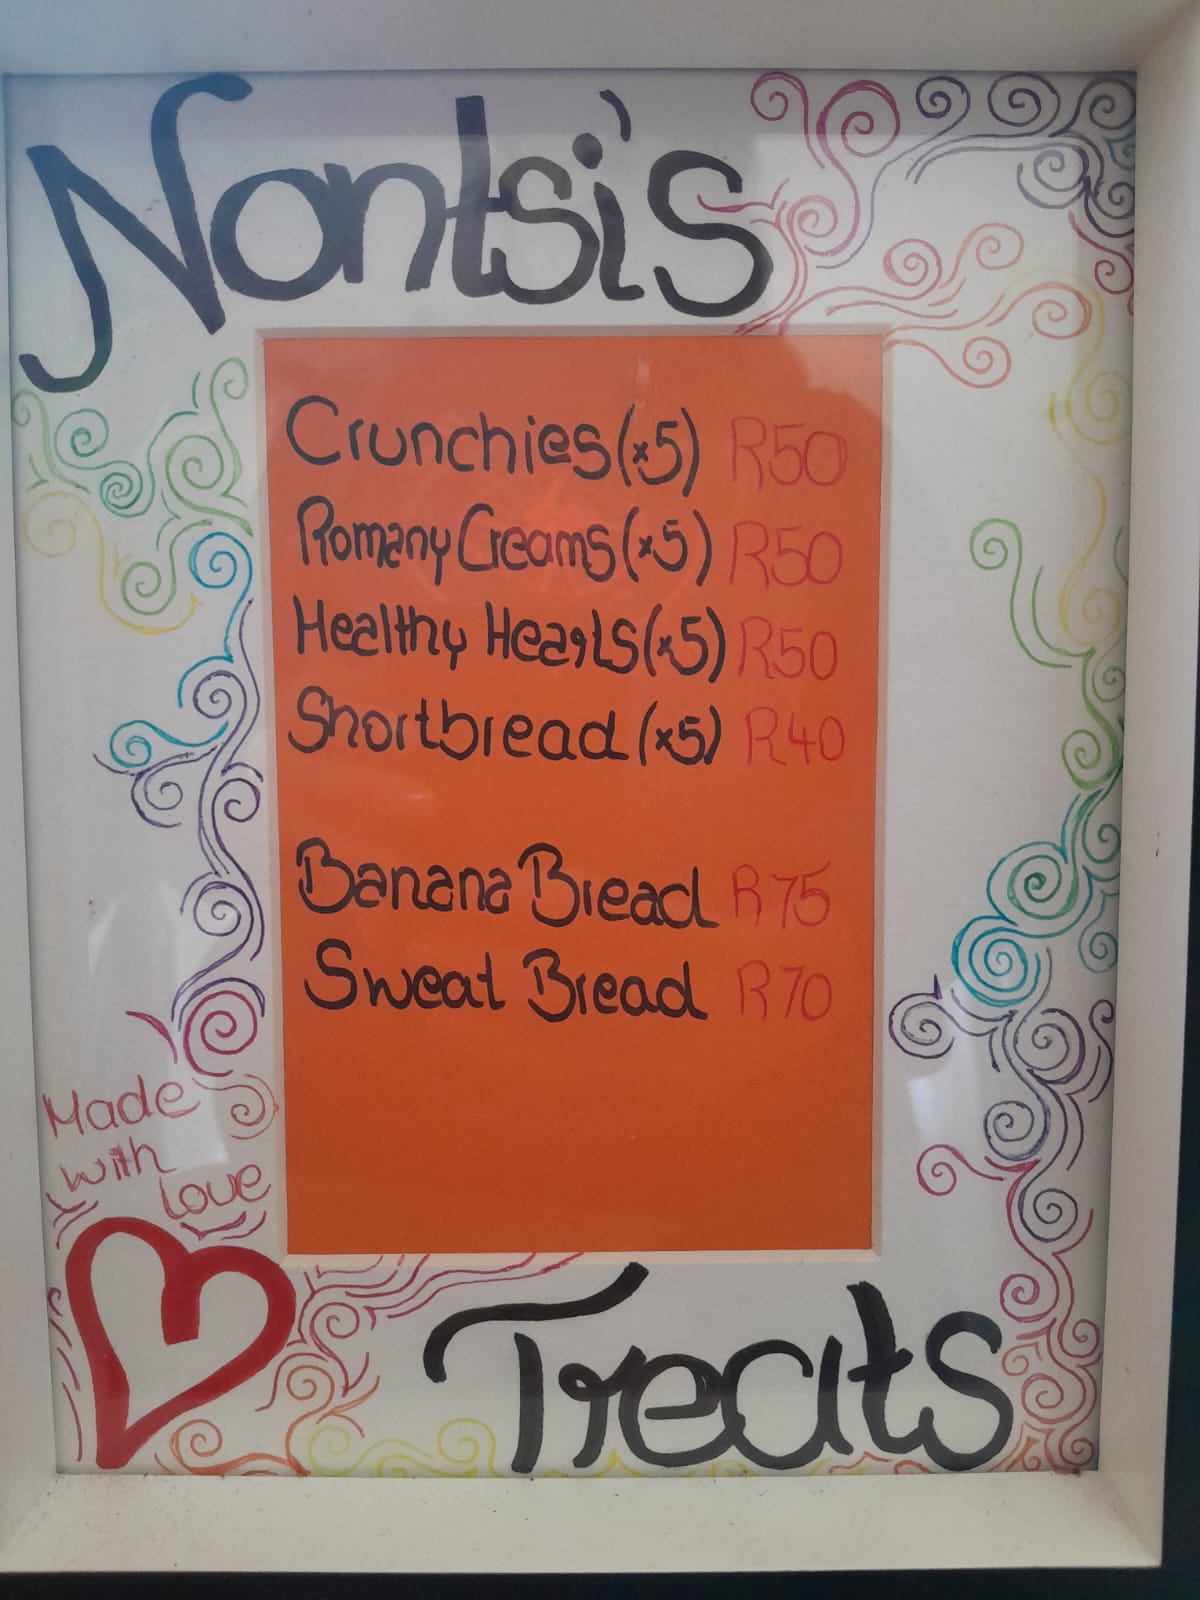 Nontsi's
Crunchies (x5) R50
Romany Creams (x5) R50
Healthy Hearts (x5) R50
Shortbread (x5) R40
Banana Bread R75
Sweat Bread R70
Made
with
love
Treats